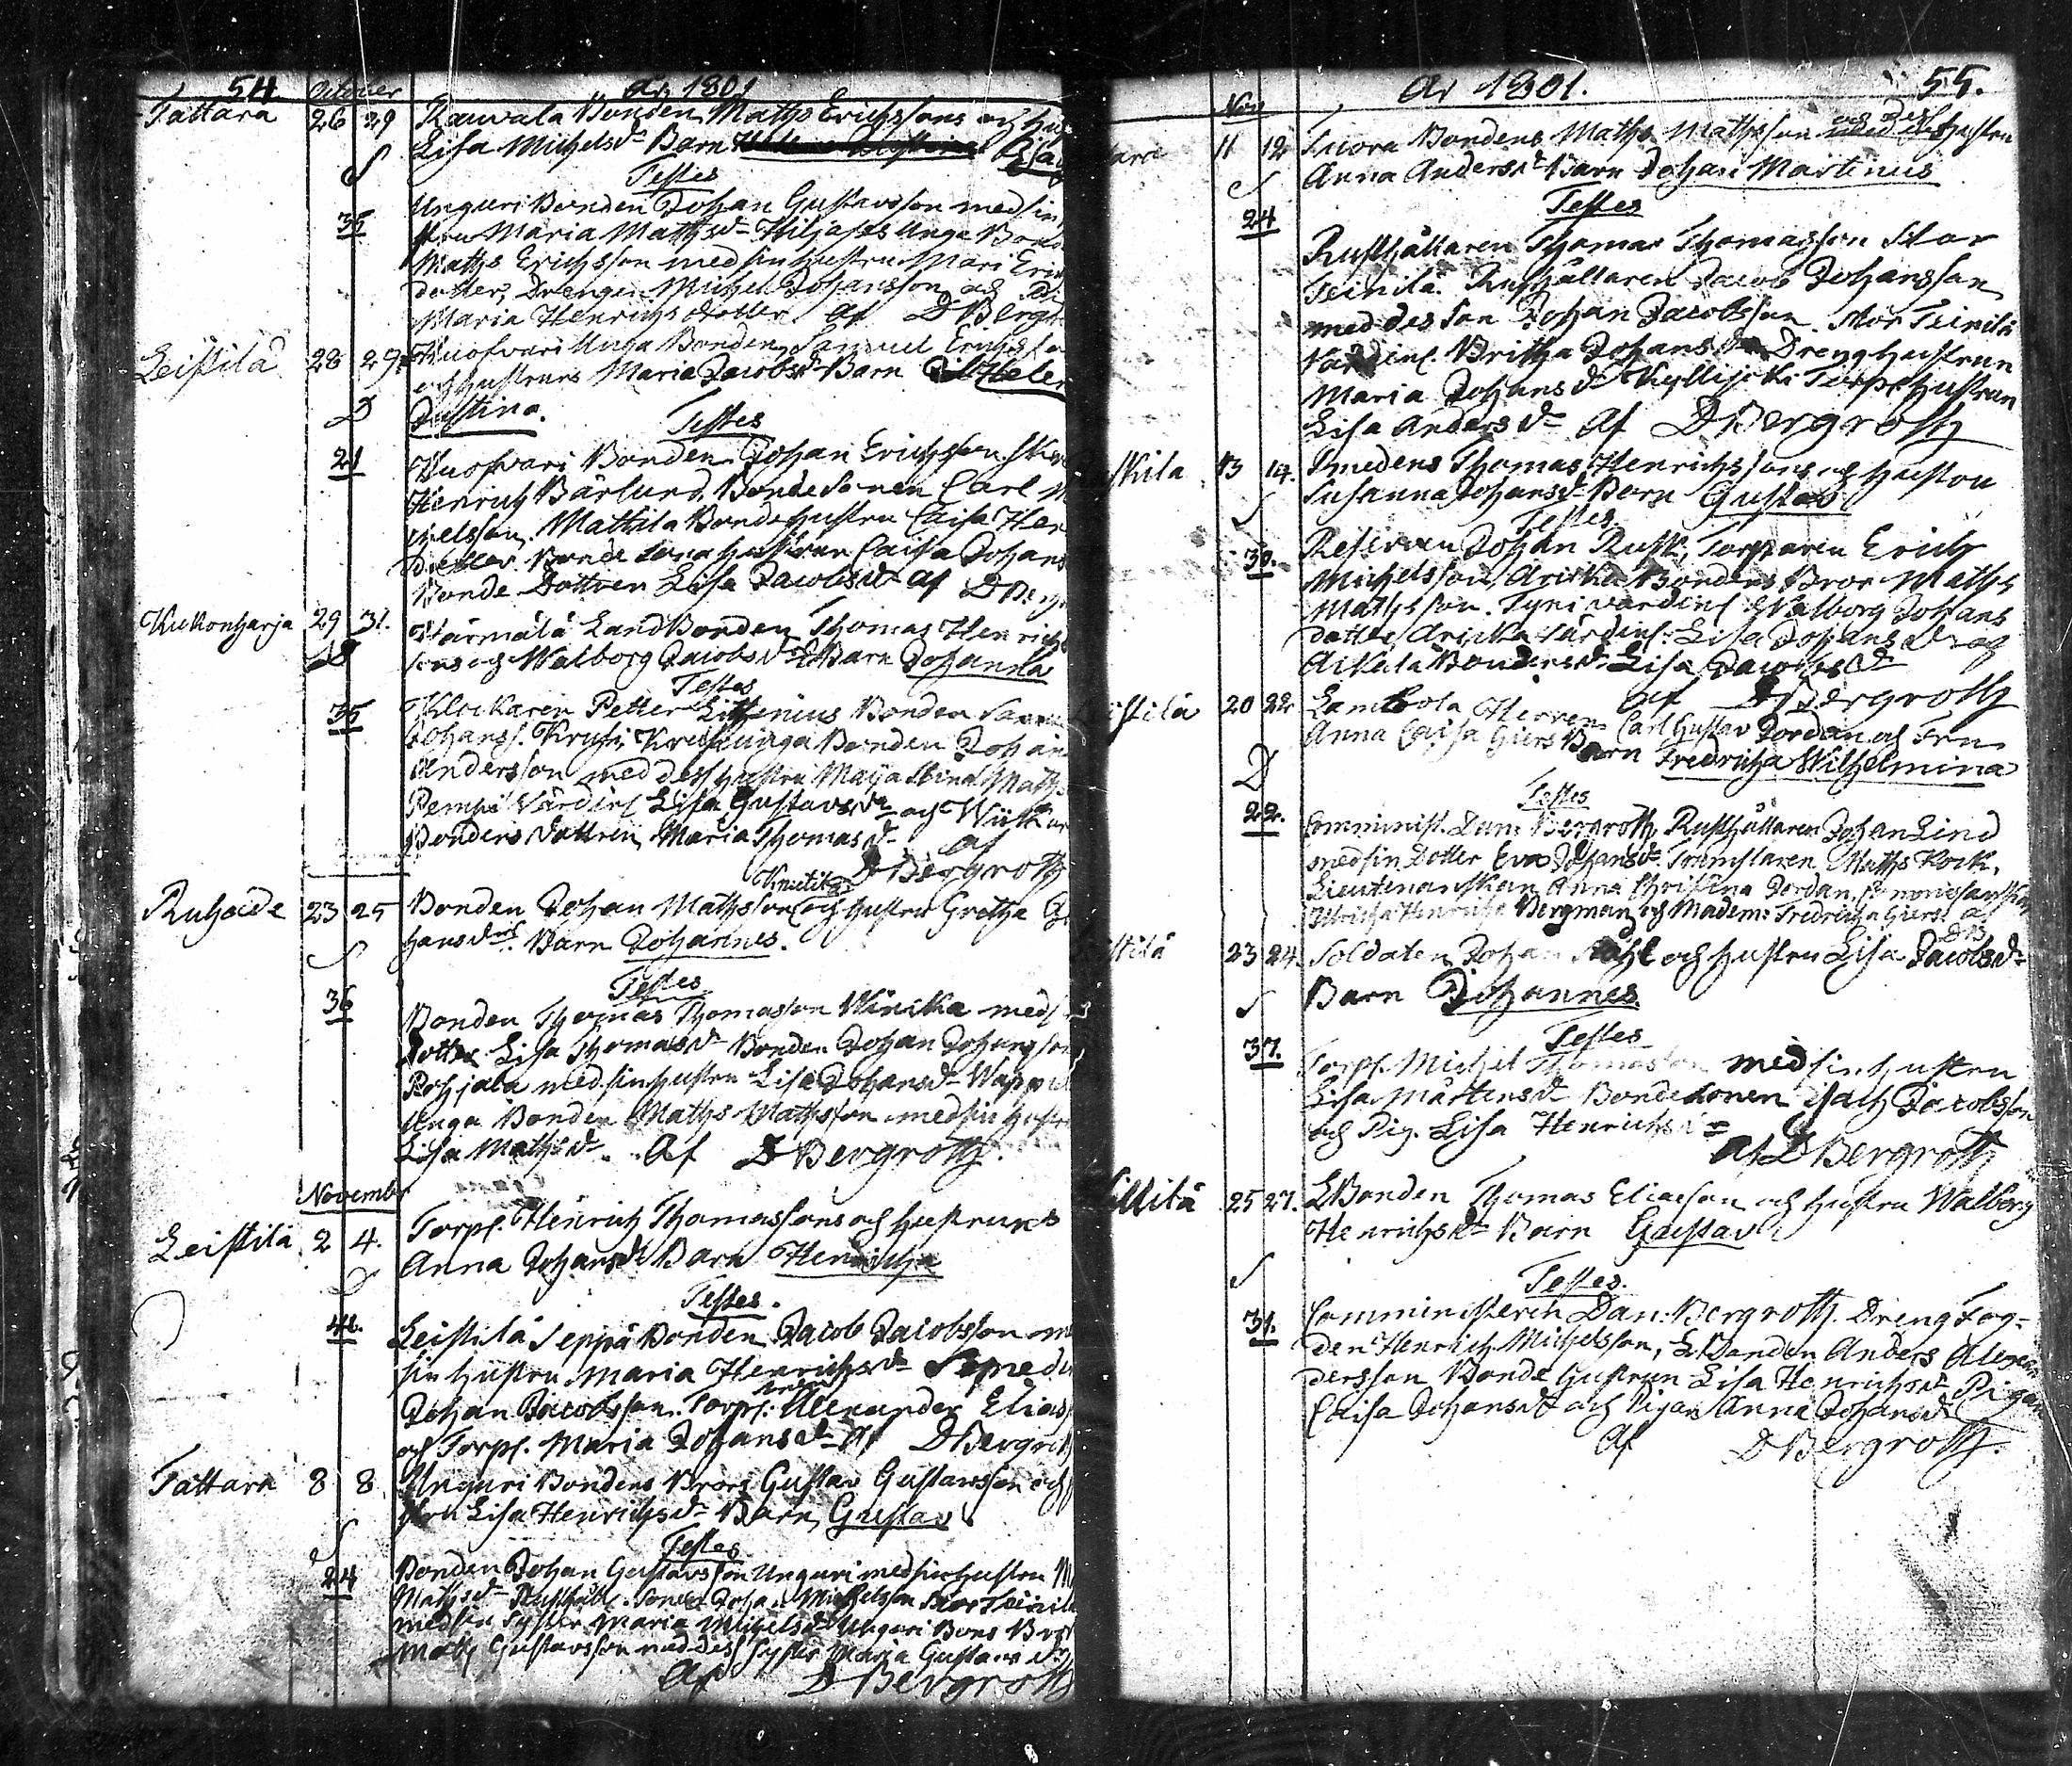 54 October År 1801
Tattara 26 29 Rauvala Bonden Maths Erichssons och
Lisa Michelsdr Barn
S Testes
Unguri Bonden Johan Gustavsson med sin
35 stru Maria Mathsdr Unga Bond
Maths Erichsson med sin hustru Mari Erics
dotter, Drengen Michel Johansson och
Maria Henrichsdotter af DBergr
Leistilä 28 29 Kuofvari Unga Bonden Samuel Erichsso
och hustrurs Maria Jacobsdr Barn Helen
D Justina. Testes
21 Kuofvari Bonden Johan Erichsson
Henrich Bärlund, Bondesonen Carl M
chelsson, Mattila Bondehustru Caisa Hen
dotter Bonde hustrun Caisa Johans
Bonde Dottren Lisa Jacobsdr af DBerg
Kukonharja 29 31. Härmälä LandBonden Thomas Henrichs
sons och Walborg Jacobsdr Barn Johanna
Testes
35 Klockaren Petter Bonden Sam
Johanss. Krusi, Krusi unga Bonden Johan
Andersson med dess hustru Maja Stina Maths
Värdins Lisa Gustavsdr och
Bondens dottren Maria Thomasdr af
DBergroth
Ruhade 23 25 Bonden Johan Mathsson Knutila och hustru Gretha Jo
hansdrs Barn Johannes.
S Testes
36 Bonden Thomas Thomasson Winika med s
dotter Lisa Thomasdr Bonden Johan Johansson
Pohjala med sin hustru Lisa Johansdr
Unga Bonden Maths Mathsson med sin hustru
Lisa Mathsdr. Af DBergroth.
November
Leistilä 2 4. Torps. Henrich Thomassons och hustruns
Anna Johansdr Barn Henricha
D Testes.
41. Leistilä Seppä Bonden Jacob Jacobsson me
sin hustru Maria Henrichsdr Smeden
Johan Jacobsson. Torps. Alexander Elias
och Torps. Maria Johansdr Af DBergroth
Tattara 8 8 Unguri Bondens Brors Gustav Gustavsson och
stru Lisa Henrichsdr Barn Gustav
S Testes
24 Bonden Johan Gustavsson Unguri med sin hustru M
Mathsdr Rusthåll. Sonen Johan Michelsson Stor Teinilä
med sin Syster Maria Michelsdr Unguri Bons Bror
Maths Gustavsson med dess syster Maria Gustavsdr
Af DBergroth
Nov År 1801. 55.
11 12 Suora Bondens Maths Mathsson och dess hustru
S Anna Andersdr Barn Johan Martinus
24 Testes
Rusthållaren Thomas Thomasson Stor
Teinilä. Rusthållaren Jacob Johansson
med des Son Johan Jacobsson. Stor Teinilä
Värdins. Britha Johansdr Dreng hustrun
Maria Johansdr Kyllijoki Torps hustrun
Lisa Andersdr Af DBergroth
13 14. Smedens Thomas Henrichssons och Hustru
S Susanna Johansdr Barn Gustav
Testes
30. Reserven Johan Rusk, Torparen Erich
Michelsson, Arikka Bondens Bror Maths
Mathsson. Tyni värdins Walborg Johans
dotter, Arikka Värdins: Lisa Johansdr och
Arkula Bondens dr Lisa Jacobsdr
af DBergroth
20 22 Lambola Herren Carl Gustav Jordan och Fru
Anna Caisa Giers Barn Fredricha Wilhelmina
D Testes
22. Comminist. Dan: Bergroth, Rusthållaren Johan Lind
med sin Dotter Eva Johansdr Maths Kock,
Lieutenanskan Anna Christina Jordan,
Henricha Bergman och Madem: Fredricha Giers: af
DB
23 24. Soldaten Johan Ståhl och hustru Lisa Jacobsdr
S Barn Johannes.
Testes
37. Torps. Michel Thomasson med sin hustru
Lisa Mårtensdr Bondesonen Isach Jacobsson
och Pig. Lisa Henrichsdr
Af DBergroth
25 27. LBonden Thomas Eliaeson och hustru Walborg
Henrichsdr Barn Gustav
S Testes.
31. Comministern Dan: Bergroth. Dreng Fog=
den Henrich Michelsson, LBonden Anders Alexan
dersson Bonde hustrun Lisa Henrichsdr Pigan
Caisa Johansdr och Pigan Anna Johansdr
Af DBergroth.